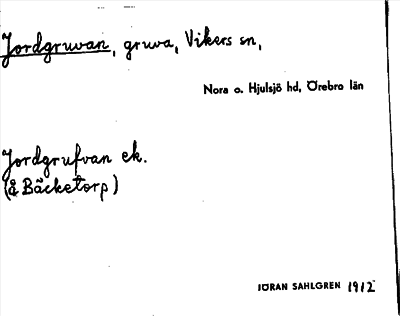 Jordgruvan, gruva, Vikers sn,
Nora o. Hjulsjö hd, Örebro län
Jordgrufvan ek.
(å Bäcketorp)
JÖRAN SAHLGREN 1912